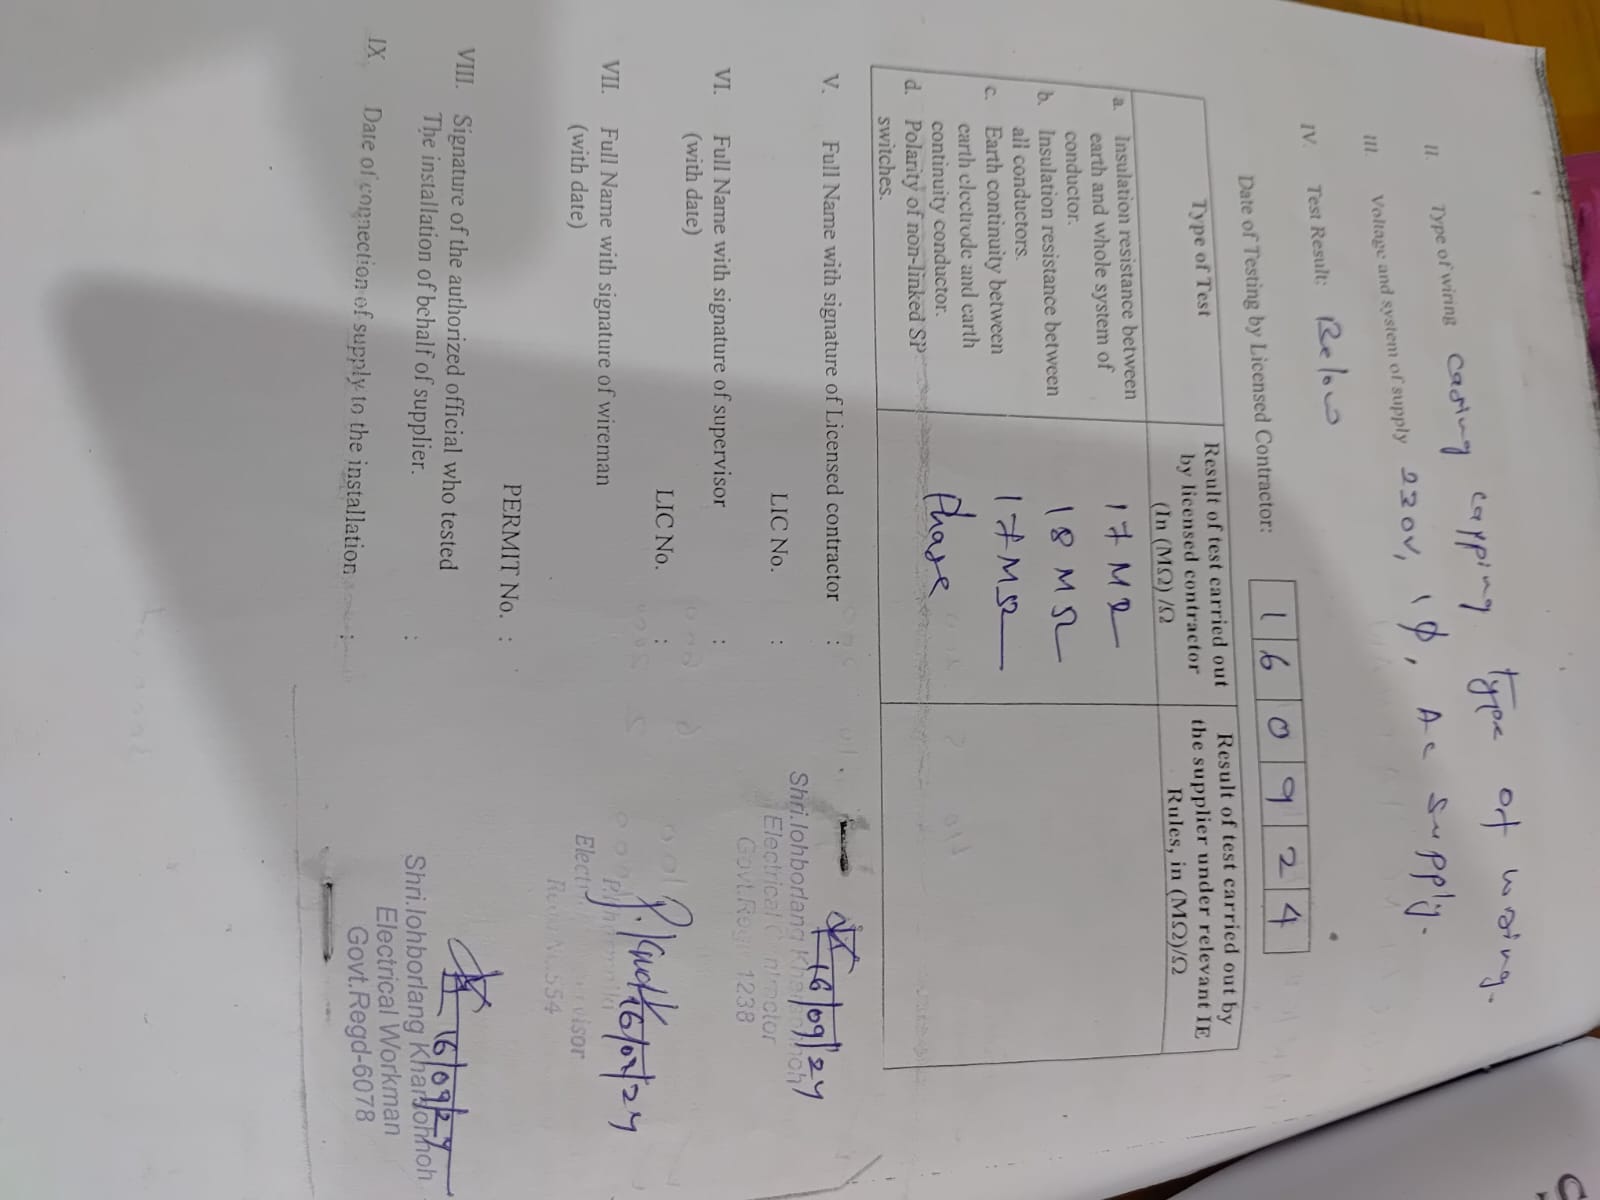 II. Type of wiring casing capping type of wiring.
III. Voltage and system of supply 230V, 1Φ, AC supply.
IV. Test Result: Below
Date of Testing by Licensed Contractor: 1 6 0 9 2 4
Type of Test
Result of test carried out by licensed contractor (In (MΩ)/Ω
Result of test carried out by the supplier under relevant IE Rules, in (MΩ)/Ω
a. Insulation resistance between
earth and whole system of
conductor.
17 MΩ
b. Insulation resistance between
all conductors.
18 MΩ
c. Earth continuity between
earth electrode and earth
continuity conductor.
17 MΩ
d. Polarity of non-linked SP
switches.
Phase
V. Full Name with signature of Licensed contractor :
16/09/24
LIC No. :
Shri.Iohborlang
Electrical Contractor
Govt.Regd 1238
VI. Full Name with signature of supervisor :
(with date)
LIC No. :
16/09/24
VII. Full Name with signature of wireman
(with date)
554
PERMIT No. :
16/09/24
VIII. Signature of the authorized official who tested
The installation of behalf of supplier. :
Shri.Iohborlang Kharjohnoh
Electrical Workman
Govt.Regd-6078
IX. Date of connection of supply to the installation :